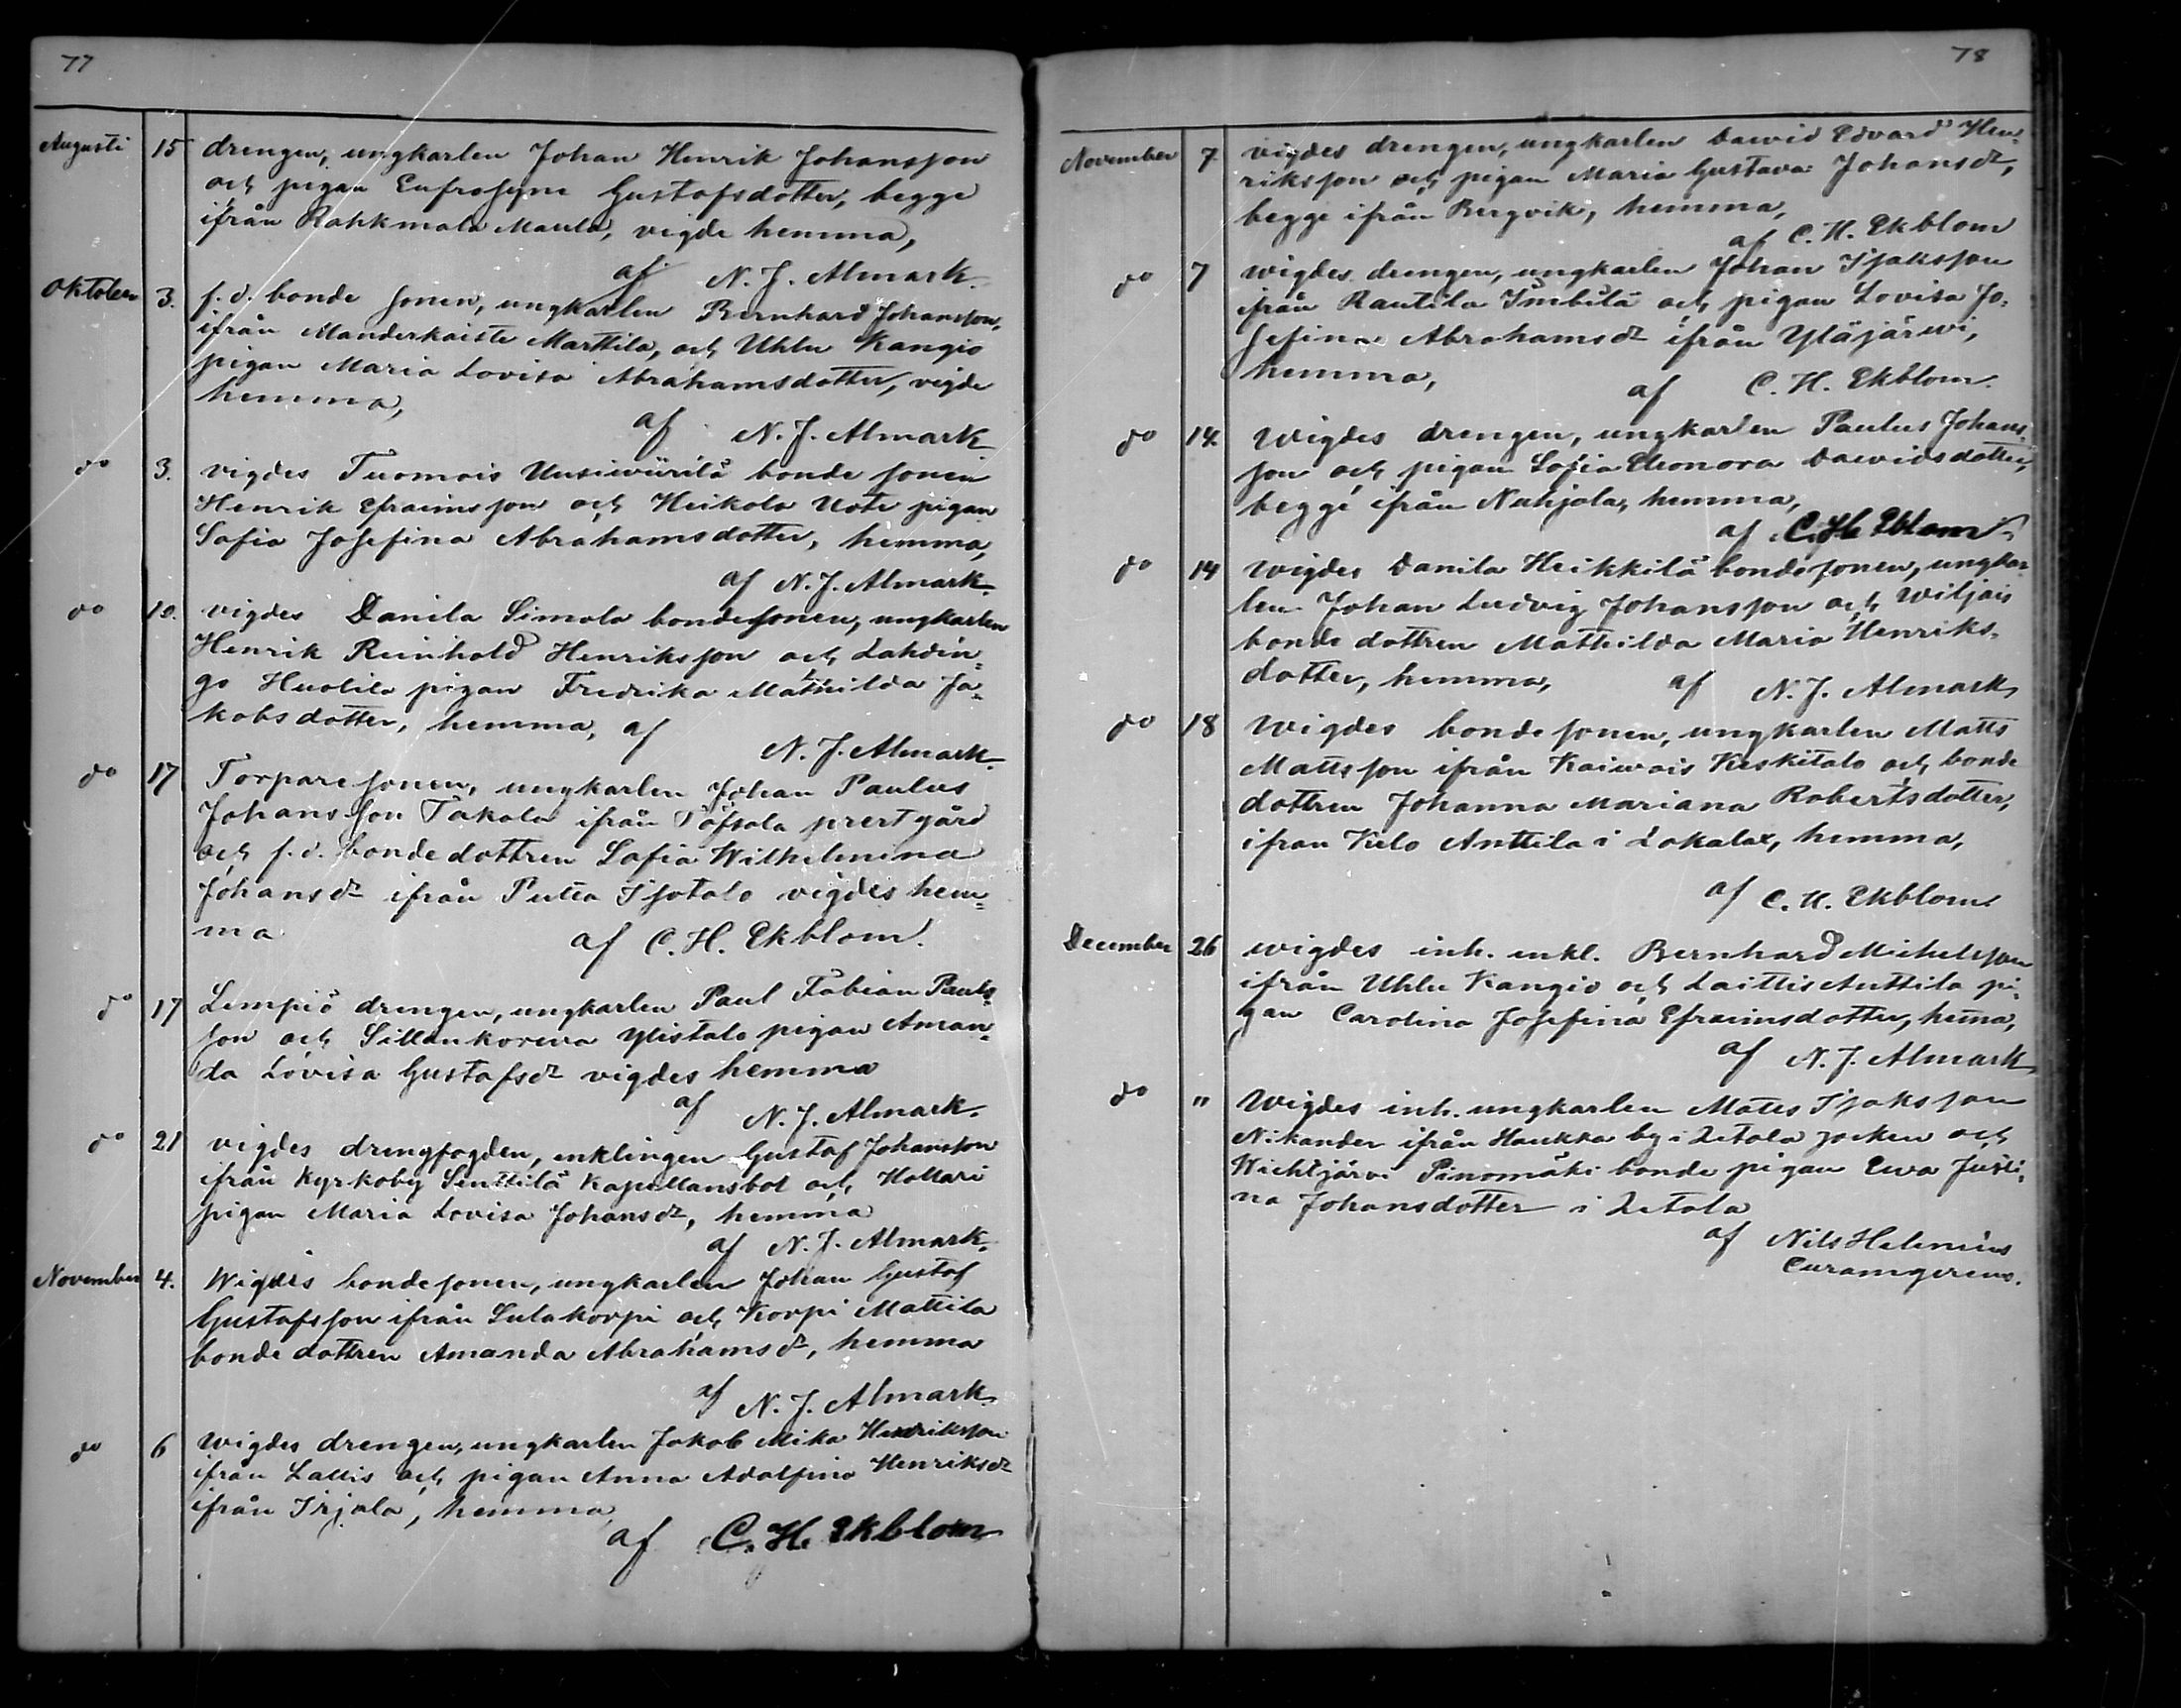 77
Augusti 15 drengen, ungkarlen Johan Henrik Johansson
och pigan Eufrosyne Gustafsdotter, begge
ifrån Rahkmala Maula, vigde hemma,
af N. J. Almark.
Oktober 3. f. d. bonde sonen, ungkarlen Bernhard Johansson,
ifrån Manderkaiste Marttila, och Uhlu Kangio
pigan Maria Lovisa Abrahamsdotter, vigde
hemma,
af N. J. Almark
do 3. vigdes Tuomois bonde sonen
Henrik Efraimsson och Heikola Uoti pigan
Sofia Josefina Abrahamsdotter, hemma,
af N. J. Almark.
do 10. vigdes Danila Simola bondesonen, ungkarlen
Henrik Reinhold Henriksson och Lahdin=
go Huolila pigan Fredrika Mathilda Ja=
kobsdotter, hemma, af
N. J. Almark.
do 17 Torparesonen, ungkarlen Johan Paulus
Johansson Takala ifrån Töfsala prestgård
och f. d. bondedottren Sofia Wilhelmina
Johansdr ifrån Putta Isotalo vigdes hem=
ma af C. H. Ekblom.
do 17 Lempiö drengen, ungkarlen Paul Fabian Pauls=
son och Sillankorwa Ylistalo pigan Aman=
da Lovisa Gustafsdr vigdes hemma
af N. J. Almark.
do 21 vigdes drengfogden, enklingen Gustaf Johansson
ifrån Kyrkoby Senttilä Kapellansbol och Hallari
pigan Maria Lovisa Johansdr, hemma
af N. J. Almark.
November 4. Wigdes bondesonen, ungkarlen Johan Gustaf
Gustafsson ifrån Sulakorpi och Korpi Mattila
bonde dottren Amanda Abrahamsdr, hemma
af N. J. Almark.
do 6 Wigdes drengen, ungkarlen Jakob Mika Henriksson
ifrån Lallis och pigan Anna Adolfina Henriksdr
ifrån Irjala, hemma,
af C. H. Ekblom
78
November 7. vigdes drengen, ungkarlen Dawid Edvard Hen=
riksson och pigan Maria Gustava Johansdr,
begge ifrån Bergvik, hemma,
af C. H. Ekblom
do 7 wigdes drengen, ungkarlen Johan Isaksson
ifrån Rautila Imbilä och pigan Lovisa Jo=
sefina Abrahamsdr ifrån Yläjärwi,
hemma,
af C. H. Ekblom.
do 14 Wigdes drengen, ungkarlen Paulus Johans=
son och pigan Sofia Eleonora Dawidsdotter,
begge ifrån Nuhjala, hemma,
af C. H. Ekblom.
do 14 Wigdes Danila Heikkilä bondesonen, ungkar=
len Johan Ludvig Johansson och Wiljais
bonde dottren Mathilda Maria Henriks=
dotter, hemma, af N. J. Almark
do 18 Wigdes bonde sonen, ungkarlen Matts
Mattsson ifrån Kaiwais Keskitalo och bonde
dottren Johanna Mariana Robertsdotter,
ifran Kelo Anttila i Lokalax, hemma,
af C. H. Ekblom
December 26 wigdes inh. enkl. Bernhard Michelsson
ifrån Uhlu Kangio och Laittis Anttila pi=
gan Carolina Josefina Efraimsdotter, hema,
af N. J. Almark
do " Wigdes inh. ungkarlen Matts Isaksson
Nikander ifrån Haukka by i Letala socken och
Wichtjärvi Pinomäki bonde pigan Ewa Justi=
na Johansdotter i Letala
af Nils Helenius
Curamgerens.